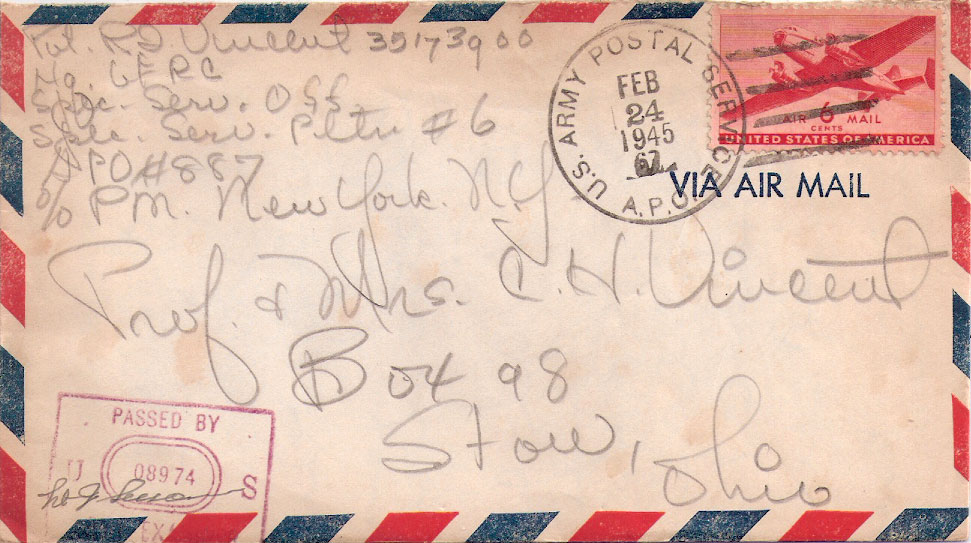 Pvt. R.D. Vincent 35173900
Hq. UTRC
Spec. Serv. OSS
Spec. Serv. Pltn #6
APO #887
c/o PM. New York. N.Y.
U.S. ARMY POSTAL SERVICE
FEB
24
1945
A.P.O.
AIR 6 MAIL
CENTS
UNITED STATES OF AMERICA
VIA AIR MAIL
Prof. & Mrs. C. H. Vincent
Box 98
Stow, Ohio
PASSED BY
08974
S